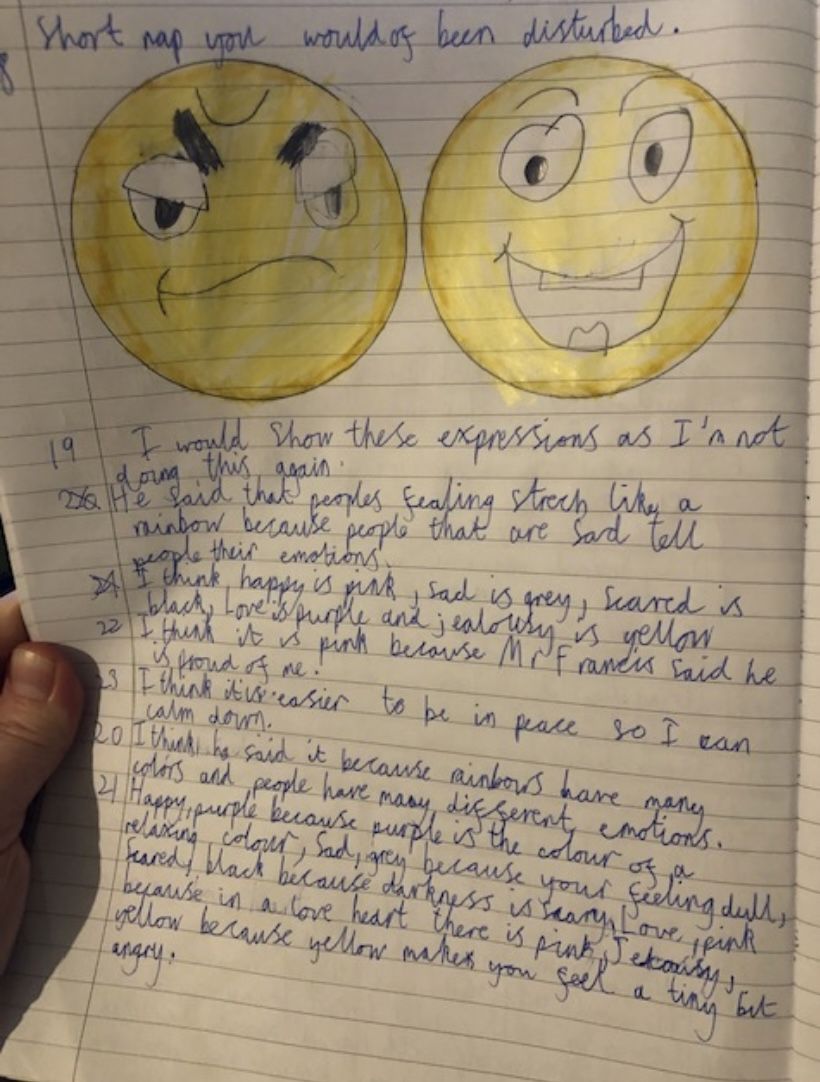 Short nap you wouldof been disturbed.
8
19 I would show these expressions as I'm not
doing this again.
He said that peoples fealing strech like a
rainbow because people that are sad tell
people their emotions.
I think happy is pink, sad is grey, scared is
black, Love is purple and jealousy is yellow
22 I think it is pink because Mr Francis said he
is proud of me.
23 I think it is easier to be in peace so I can
calm down.
20 I think he said it because rainbows have many
colors and people have many different emotions.
21 Happy, purple because purple is the colour of a
relaxing colour, Sad, grey because your feeling dull,
Scared, black because darkness is scary, Love, pink
because in a love heart there is pink, Jelousy,
yellow because yellow makes you feel a tiny bit
angry.